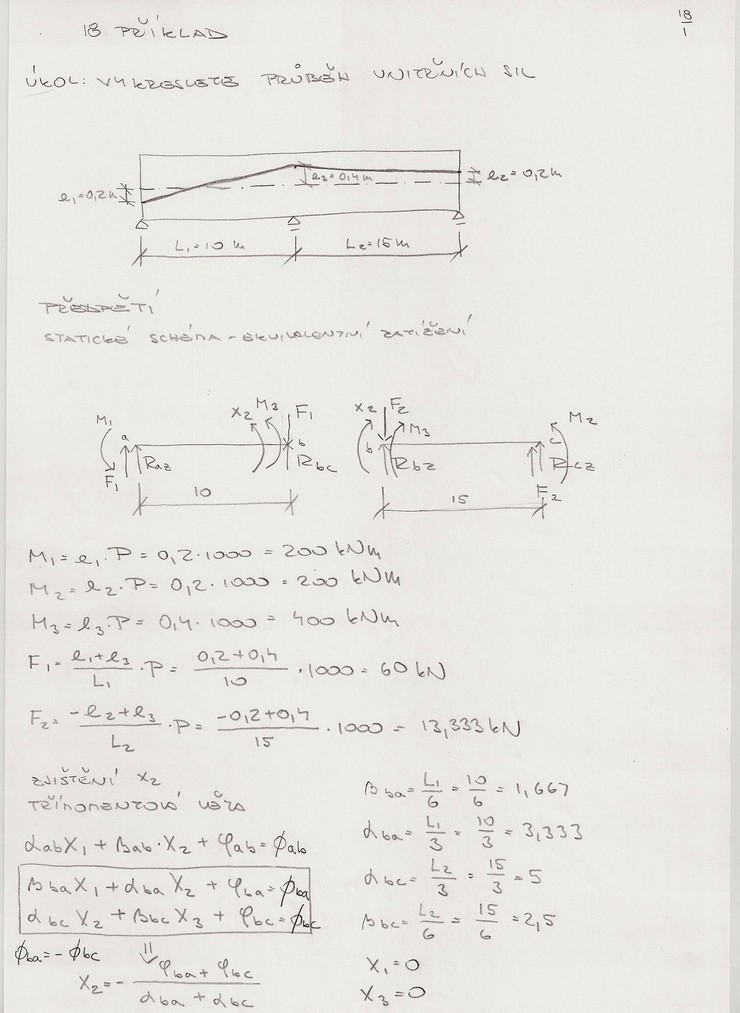 18. PŘÍKLAD
18
1
ÚKOL: VYKRESLETE PRŮBĚH VNITŘNÍCH SIL
e₁=0,2m
e₃=0,4m
e₂=0,2m
L₁=10 m
L₂=15m
PŘEDPĚTÍ
STATICKÉ SCHÉMA - EKVIVALENTNÍ ZATÍŽENÍ
M₁ a F₁ Raz X₂ M3 F₁ b Rbc
X₂ F₂ M₃ b Rbz c M₂ Rcz F₂
10
15
M₁ = e₁.P = 0,2.1000 = 200 kNm
M₂ = e₂.P = 0,2.1000 = 200 kNm
M₃ = e₃.P = 0,4.1000 = 400 kNm
F₁ = (e₁+e₃)/L₁ .P = (0,2+0,4)/10 .1000 = 60 kN
F₂ = (-e₂+e₃)/L₂ .P = (-0,2+0,4)/15 .1000 = 13,333 kN
ZJIŠTĚNÍ X₂
TŘÍMOMENTOVÁ VĚTA
αab X₁ + βab.X₂ + φab = ϕab
βba X₁ + αba X₂ + φba = ϕba
αbc X₂ + βbc X₃ + φbc = ϕbc
ϕba = -ϕbc
X₂ = - (φba + φbc)/(αba + αbc)
βba = L₁/6 = 10/6 = 1,667
αba = L₁/3 = 10/3 = 3,333
αbc = L₂/3 = 15/3 = 5
βbc = L₂/6 = 15/6 = 2,5
X₁ = 0
X₃ = 0